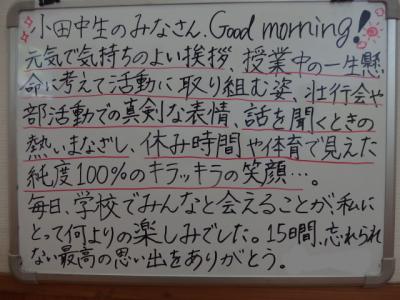 小田中生のみなさん、Good morning!
元気で気持ちのよい挨拶、授業中の一生懸
命に考えて活動に取り組む姿、壮行会や
部活動での真剣な表情、話を聞くときの
熱いまなざし、休み時間や体育で見えた
純度100%のキラッキラの笑顔…。
毎日、学校でみんなと会えることが、私に
とって何よりの楽しみでした。15日間、忘れられ
ない最高の思い出をありがとう。